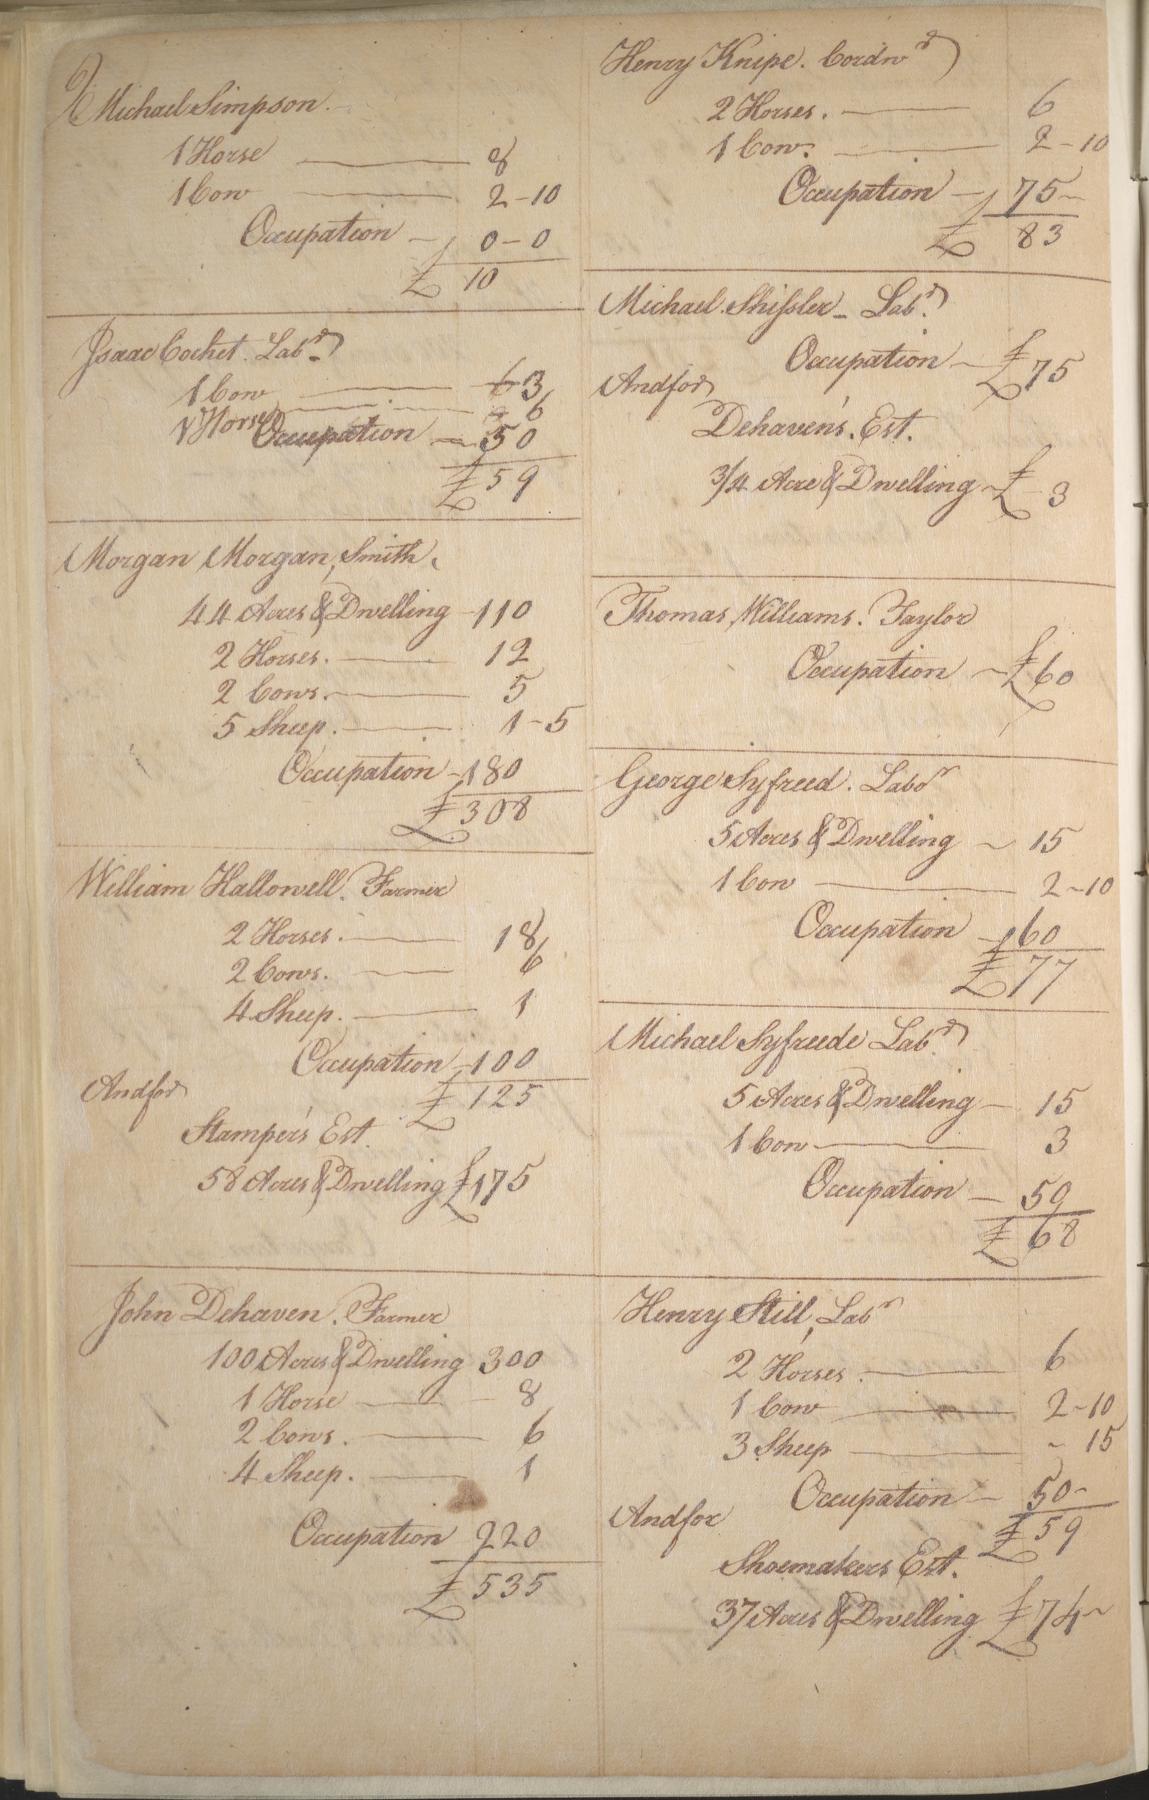 6
Michael Simpson.
1 Horse — 8
1 Cow — 2-10
Occupation — 0-0
£ 10
Isaac Cochet. Labr.
1 Cow — 3
1 Horse — 6
Occupation — 50
£ 59
Morgan Morgan, Smith.
44 Acres & Dwelling - 110
2 Horses. — 12
2 Cows. — 5
5 Sheep. — 1-5
Occupation - 180
£ 308
William Hallowell. Farmer
2 Horses. — 18
2 Cows. — 6
4 Sheep. — 1
Occupation - 100
£ 125
And for
Stamper's Est.
58 Acres & Dwelling £ 175
John Dehaven. Farmer
100 Acres & Dwelling 300
1 Horse — 8
2 Cows. — 6
4 Sheep. — 1
Occupation 220
£ 535
Henry Knipe. Cordwr
2 Horses. — 6
1 Cow. — 2-10
Occupation - 75-
£ 83
Michael Shissler - Labr.
Occupation - £ 75
And for
Dehaven's. Est.
3/4 Acre & Dwelling - £ 3
Thomas Williams. Taylor
Occupation - £ 60
George Syfreed. Labor
5 Acres & Dwelling - 15
1 Cow — 2-10
Occupation - 60
£ 77
Michael Syfreede Labr.
5 Acres & Dwelling - 15
1 Cow — 3
Occupation - 50
£ 68
Henry Still, Labr
2 Horses. — 6
1 Cow — 2-10
3 Sheep — - 15
Occupation - 50-
£ 59
And for
Shoemakers Est.
37 Acres & Dwelling £ 74-